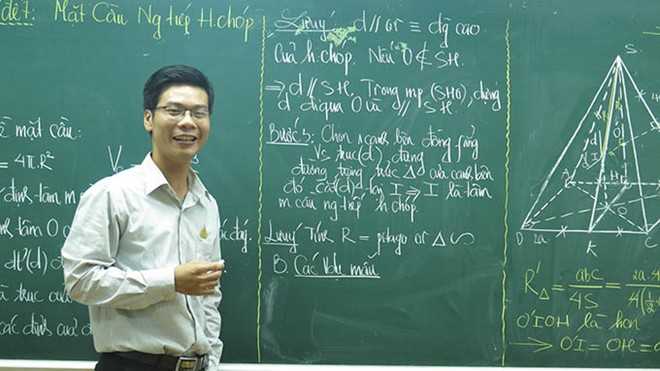 đề 7: Mặt Cầu Ng tiếp H.chóp
mặt cầu:
= 4π.R²
định tâm m
định tâm O c
đáy.
dt²(d)
trục của
các đỉnh của đ
Lưu ý d // or ≡ đg cao
của h.chóp. Nếu O ∉ SH.
⇒ d // SH. Trong mp (SHO), dựng
d đi qua O và d // SH.
Bước 3: Chọn 1 cạnh bên đồng phẳng
vs trục (d), dựng
đường trung trực Δ của cạnh bên
đó, cắt (d) tại I ⇒ I là tâm
m cầu ng tiếp h.chóp.
Lưu ý Tính R = pitago or Δ ∽
B. Các Ví dụ mẫu
S
A
I
H
D 2a K C
R'Δ = abc/4S = 2a.
O'IOH là hcn
→ O'I = OH =